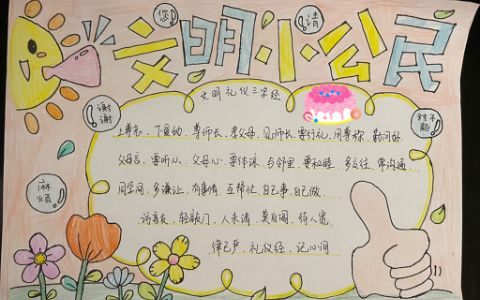 您
请
文明小公民
文明礼仪三字经
谢谢
对不起
麻烦
上尊老、下爱幼、尊师长、孝父母、见师长、要行礼、用尊称、勤问好
父母言、要听从、父母心、要体谅、与邻里、要和睦、多交往、常沟通
同学间、多谦让、有事情、互帮忙、自己事、自己做
访亲友、轻敲门、人未请、莫自闯、待人宽
律己严、礼仪经、记心间